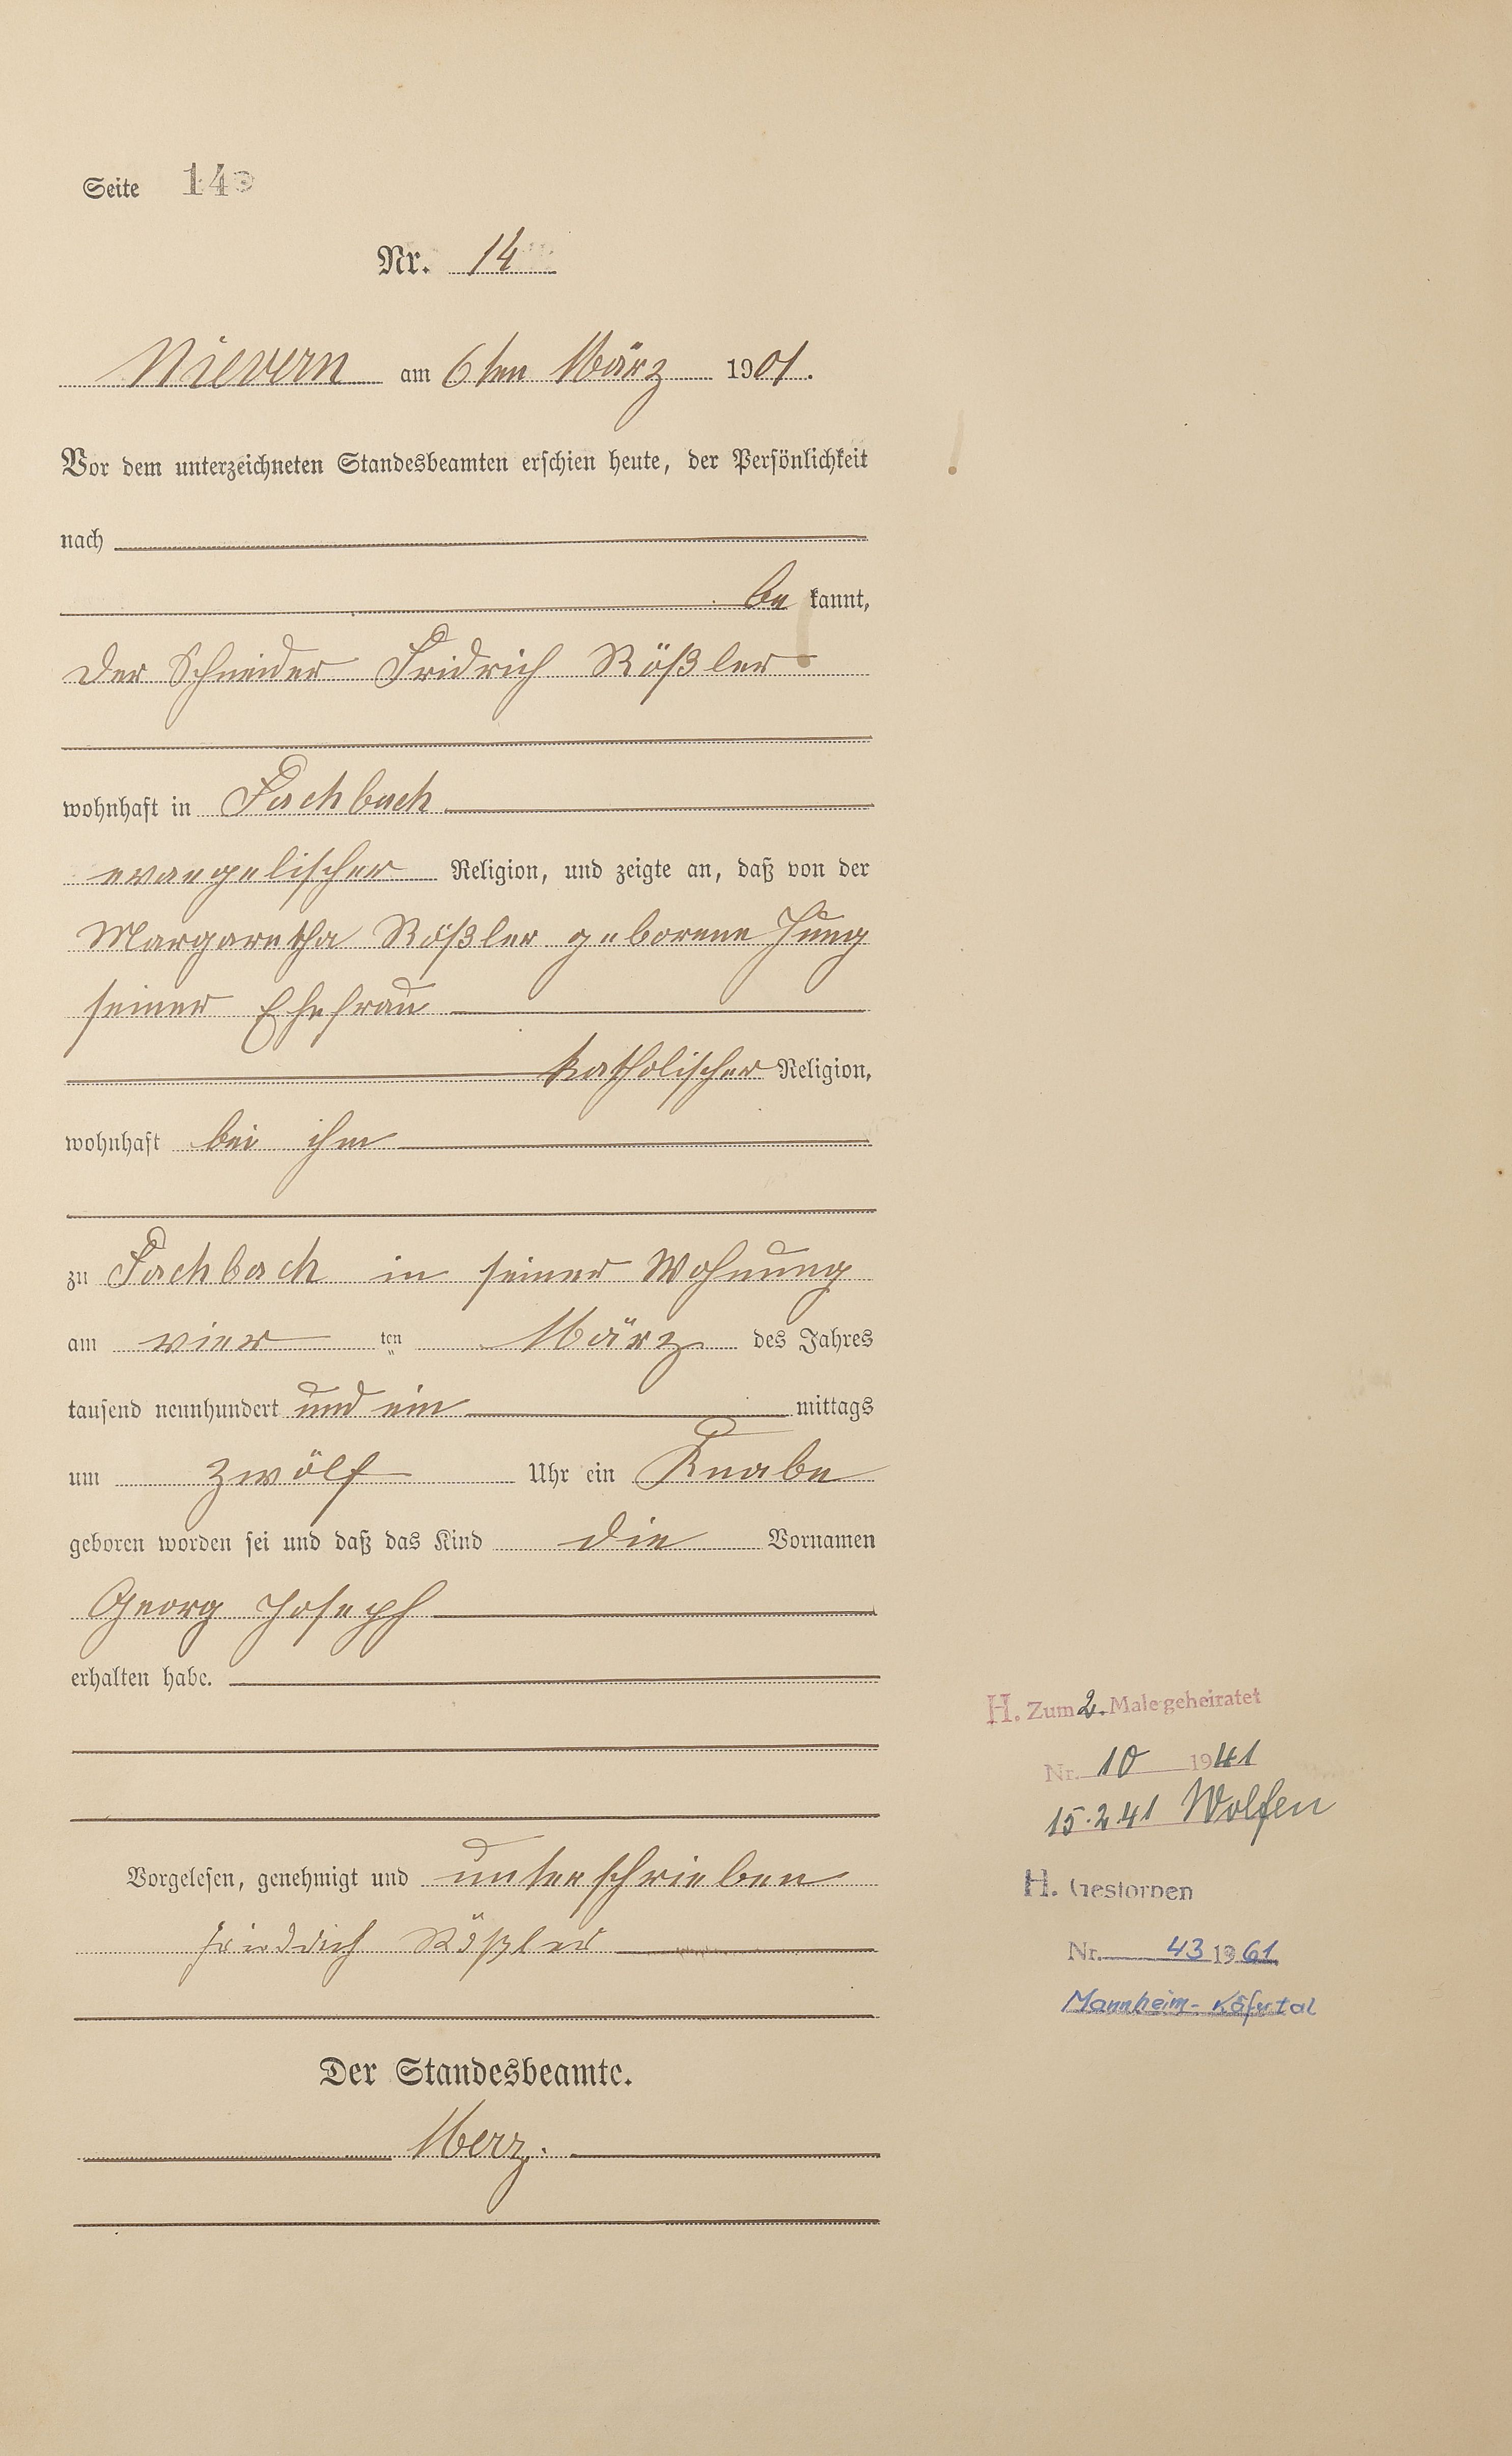 Seite 14
Nr. 14
Nievern am 6ten März 1901.
Vor dem unterzeichneten Standesbeamten erschien heute, der Persönlichkeit
nach
be kannt,
der Schneider Fridrich Rößler
wohnhaft in Fachbach
evangelischer Religion, und zeigte an, daß von der
Margaretha Rößler geborene Jung
seiner Ehefrau
katholischer Religion,
wohnhaft bei ihm
zu Fachbach in seiner Wohnung
am vier ten März des Jahres
tausend neunhundert und ein mittags
um zwölf Uhr ein Knabe
geboren worden sei und daß das Kind die Vornamen
Georg Joseph
erhalten habe.
Vorgelesen, genehmigt und unterschrieben
Friedrich Rößler
Der Standesbeamte.
Merz.
H. Zum 2. Male geheiratet
Nr. 10 1941
15.2.41 Wolfen
H. Gestorben
Nr. 43 1961
Mannheim-Käfertal